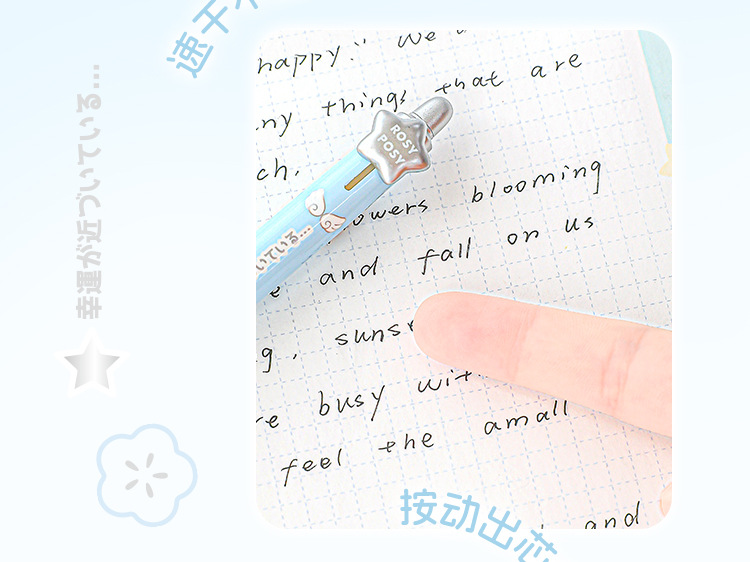 速干
幸運が近づいている...
happy." We
things that are
ROSY
POSY
blooming
ている...
and fall on us
busy
feel the amall
and
按动出芯